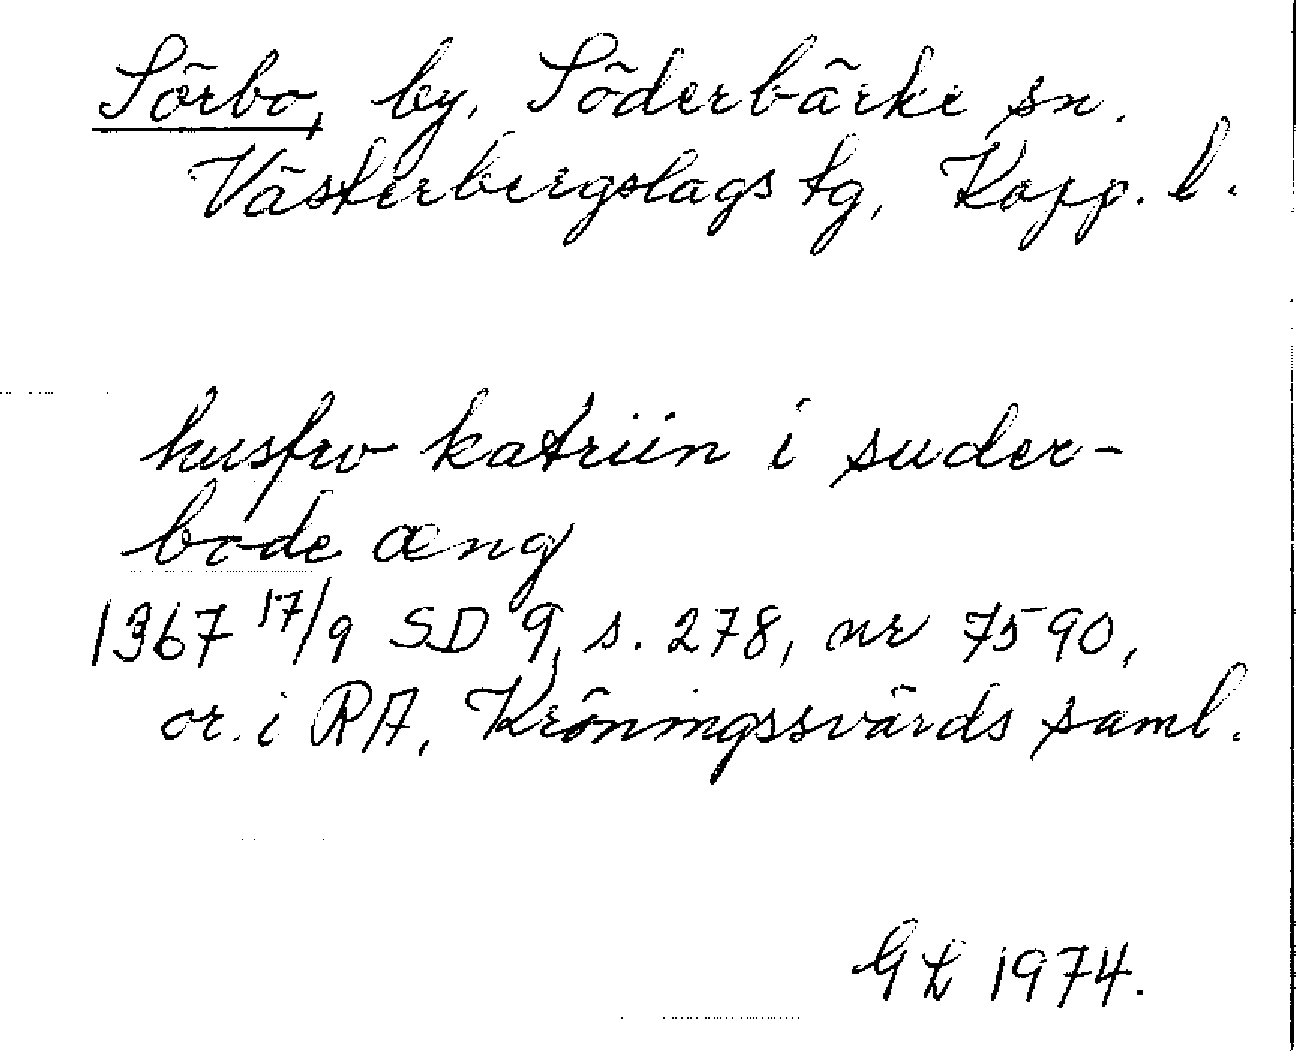 Sörbo, by, Söderbärke sn.
Västerbergslags tg, Kopp. l.
husfrv katriin i suder-
bode æng
1367 17/9 SD 9, s. 278, nr 7590,
or. i RA, Kröningssvärds saml.
G L 1974.